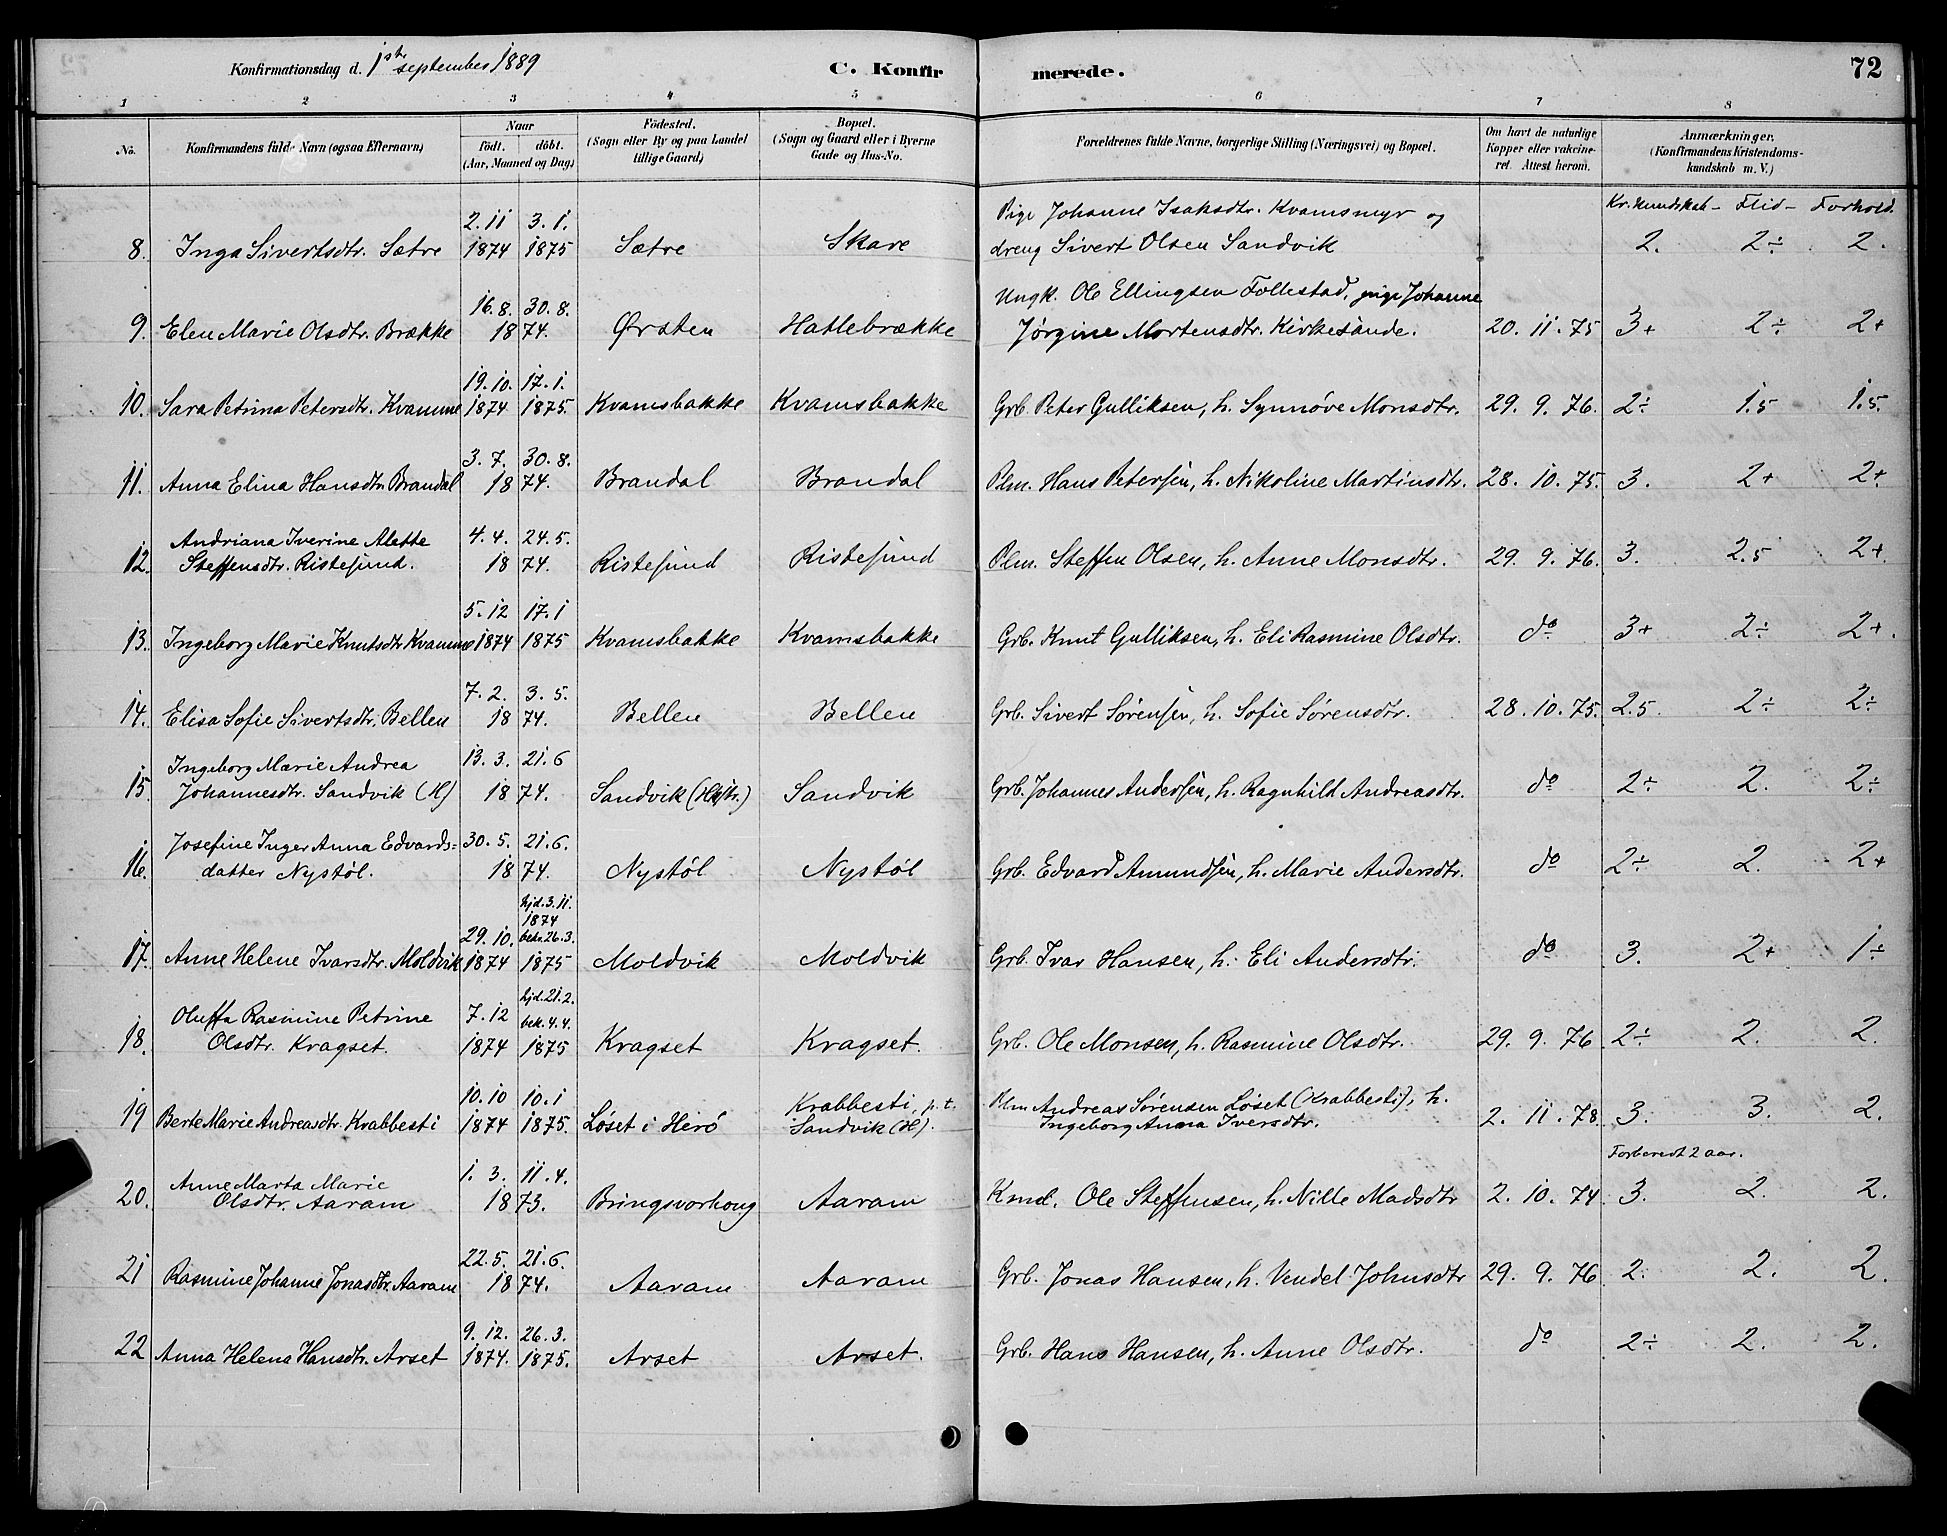 Konfirmationsdag d. 1ste september 1889
C. Konfirmerede.
72
1 2 3 4 5 6 7 8
No.
Konfirmandens fulde Navn (ogsaa Efternavn)
Naar
født. døbt.
(Aar, Maaned og Dag)
Fødested.
(Sogn eller By og paa Landet
tillige Gaard)
Bopæl.
(Sogn og Gaard eller i Byerne
Gade og Hus-No.
Forældrenes fulde Navne, borgerlige Stilling (Næringsvei) og Bopæl.
Om havt de naturlige
Kopper eller vakcine-
ret. Attest herom.
Anmærkninger.
(Konfirmandens Kristendoms-
kundskab m. V.)
Kr. kundskab – Flid – Forhold.
2.11 3.1. Pige Johanne Isaksdtr. Kvamsmyr og
8. Inga Sivertsdtr. Sætre 1874 1875 Sætre Skare dreng Sivert Olsen Sandvik 2. 2÷ 2.
16.8. 30.8. Ungk. Ole Ellingsen Follestad, pige Johanne
9. Elen Marie Olsdtr. Brække 1874. Ørsten Hatlebrække Jørgine Mortensdtr. Kirkesande. 20.11.75 3+ 2÷ 2+
19.10. 17.1.
10. Sara Petrina Petersdtr. Kvamme 1874 1875. Kvamsbakke Kvamsbakke Grb. Peter Gulliksen, h. Synnøve Monsdtr. 29. 9. 76. 2÷ 1.5 1.5.
3.7. 30.8.
11. Anna Elina Hansdtr. Brandal 1874. Brandal Brandal Plm. Hans Petersen, h. Nikoline Martinsdtr. 28. 10. 75. 3. 2+ 2+.
Andriana Iverine Alette 4.4. 24.5.
12. Steffensdtr. Ristesund. 1874. Ristesund Ristesund Plm. Steffen Olsen, h. Anne Monsdtr. 29. 9. 76. 3. 2.5 2+.
5.12 17.1
13. Ingeborg Marie Knutsdtr Kvamme 1874 1875 Kvamsbakke Kvamsbakke Grb. Knut Gulliksen, h. Eli Rasmine Olsdtr. do 3+ 2÷ 2+.
7.2. 3.5.
14. Elisa Sofie Sivertsdtr. Bellen 1874. Bellen Bellen Grb. Sivert Sørensen, h. Sofie Sørensdtr. 28. 10. 75. 2.5. 2÷ 2÷
Ingeborg Marie Andrea 13.3. 21.6
15. Johannesdtr. Sandvik (H) 1874. Sandvik Sandvik Grb. Johannes Andersen, h. Ragnhild Andreasdtr. do 2÷ 2. 2÷
Josefine Inger Anna Edvards= 30.5. 21.6.
16. datter Nystøl. 1874. Nystøl Nystøl Grb. Edvard Amundsen, h. Marie Andersdtr. do 2÷ 2. 2+
hjd. 3.11.
1874
29.10. bek. 26.3.
17. Anne Helene Ivarsdtr. Moldvik 1874 1875 Moldvik Moldvik Grb. Ivar Hansen, h. Eli Andersdtr. do 3. 2+ 1÷
hjd. 21.2.
Oluffa Rasmine Petrine 7.12 bek. 4.4.
18. Olsdtr. Kragset. 1874 1875 Kragset Kragset. Grb. Ole Monsen, h. Rasmine Olsdtr. 29. 9. 76 2÷ 2. 2.
10.10 10.1 Krabbesti, p.t. Plm Andreas Sørensen Løset (Krabbesti), h.
19 Berte Marie Andreasdtr. Krabbesti 1874 1875. Løset i Herø Sandvik (H). Ingeborg Anna Iversdtr. 2. 11. 78. 3. 3. 2.
Forberedt 2 aar.
Anne Marta Marie 1.3. 11.4.
20. Olsdtr. Aaram 1873. Bringsvorhoug Aaram Kmd. Ole Steffensen, h. Nille Madsdtr 2. 10. 74 3. 2. 2.
22.5. 21.6.
21 Rasmine Johanne Jonasdtr. Aaram 1874. Aaram Aaram Grb. Jonas Hansen, h. Vendel Johnsdtr 29. 9. 76 2. 2. 2.
9.12. 26.3.
22 Anna Helena Hansdtr. Arset 1874. 1875. Arset Arset. Grb. Hans Hansen, h. Anne Olsdtr. do 2÷ 2. 2.